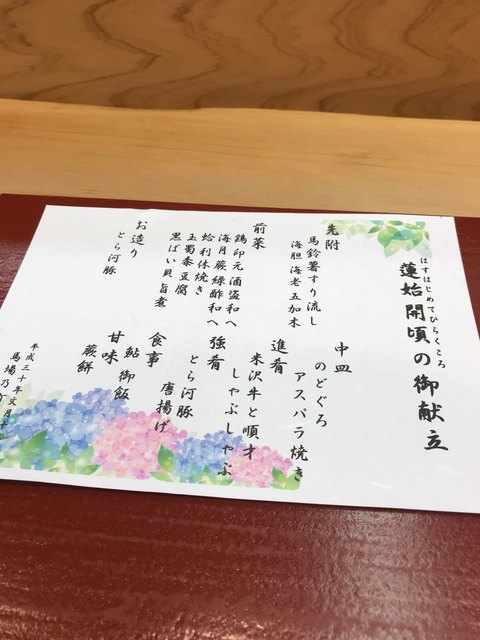 はすはじめてひらくころ
蓮始開頃の御献立
先附
馬鈴薯すり流し
海胆海老五加木
前菜
鶏印元酒盗和へ
海月蕨緑酢和へ
蛤利休焼き
玉蜀黍豆腐
黒ばい貝旨煮
お造り
とら河豚
中皿
のどぐろ
アスパラ焼き
進肴
米沢牛と順才
しゃぶしゃぶ
強肴
とら河豚
唐揚げ
食事
鮎御飯
甘味
蕨餅
平成三十年文月十
馬場乃